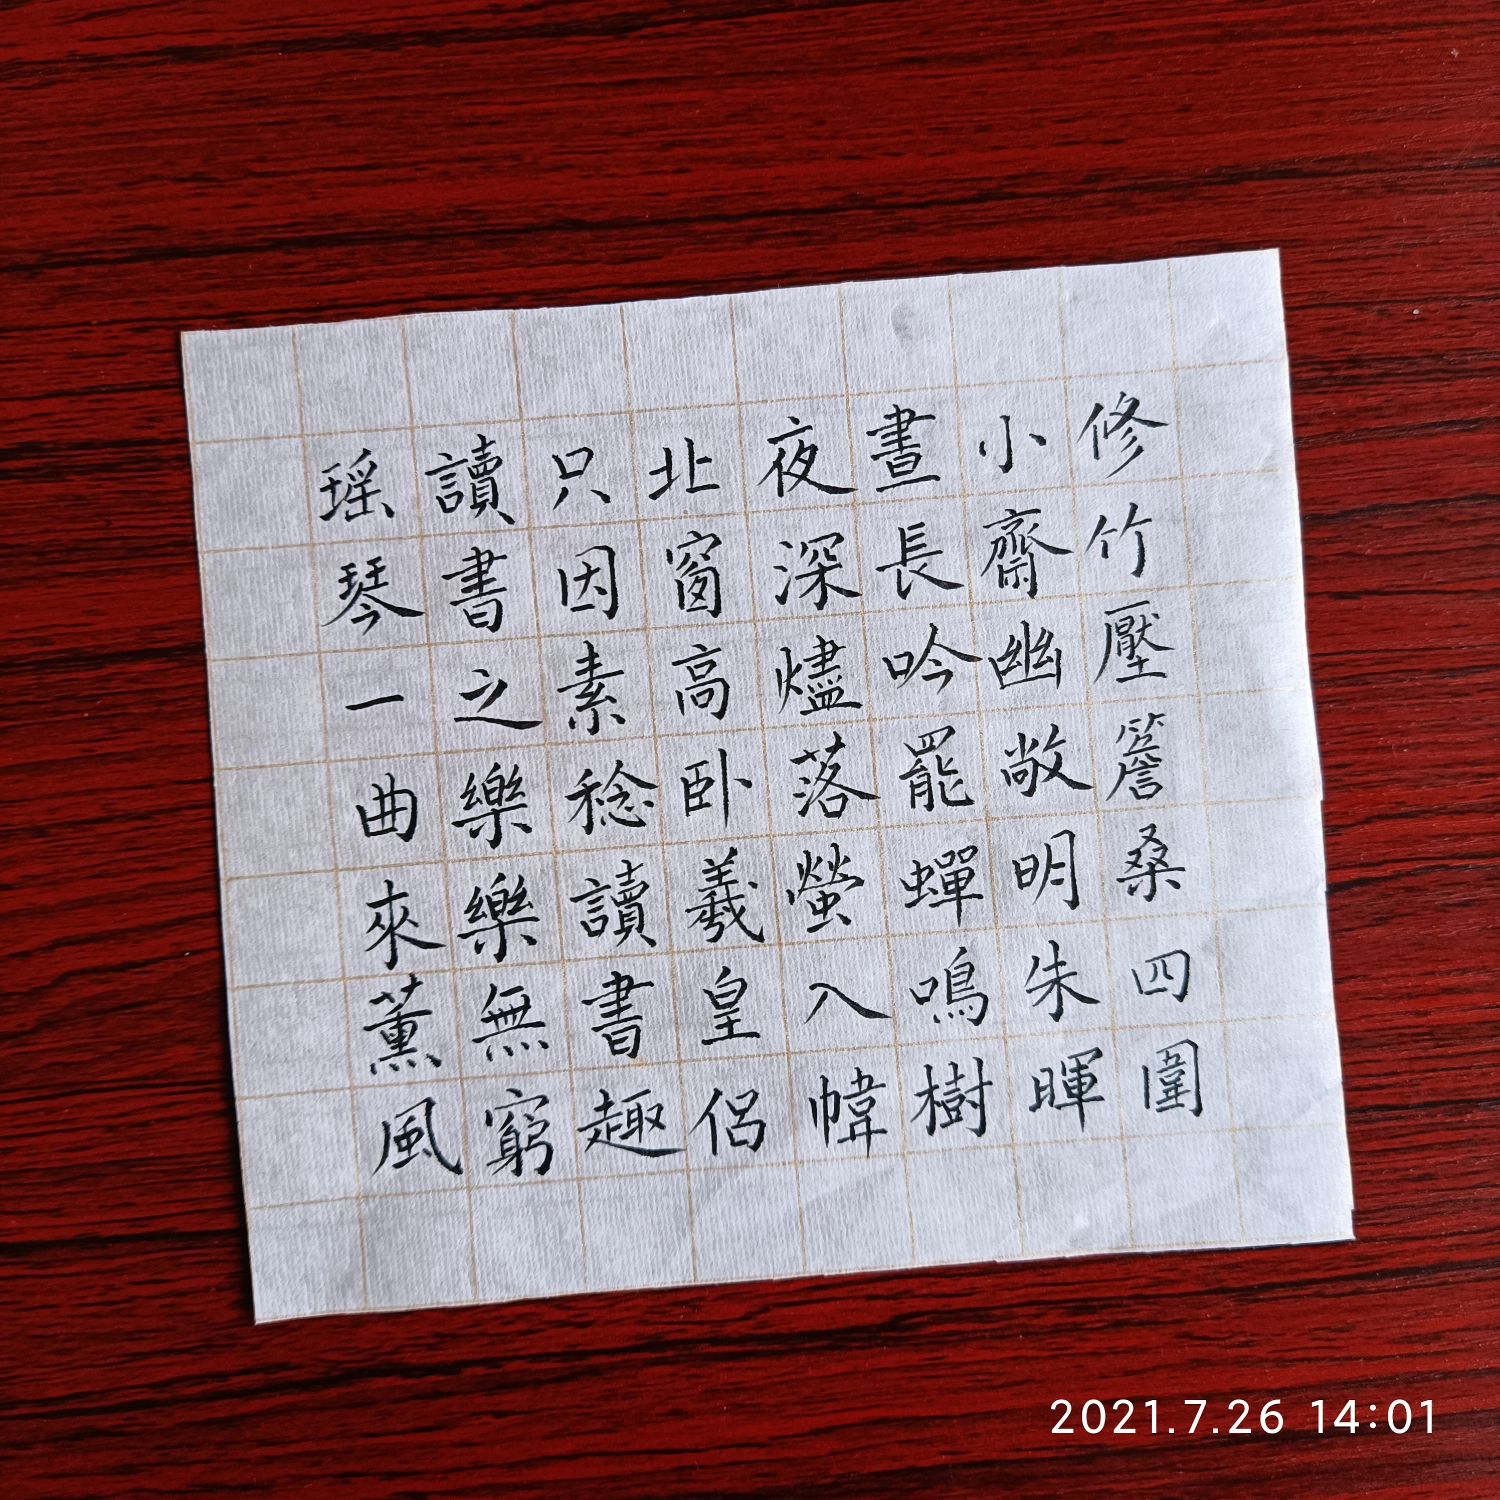 修竹壓簷桑四圍
小齋幽敞明朱暉
晝長吟罷蟬鳴樹
夜深燼落螢入幃
北窗高卧羲皇侣
只因素稔讀書趣
讀書之樂樂無窮
瑶琴一曲來薰風
2021.7.26 14:01